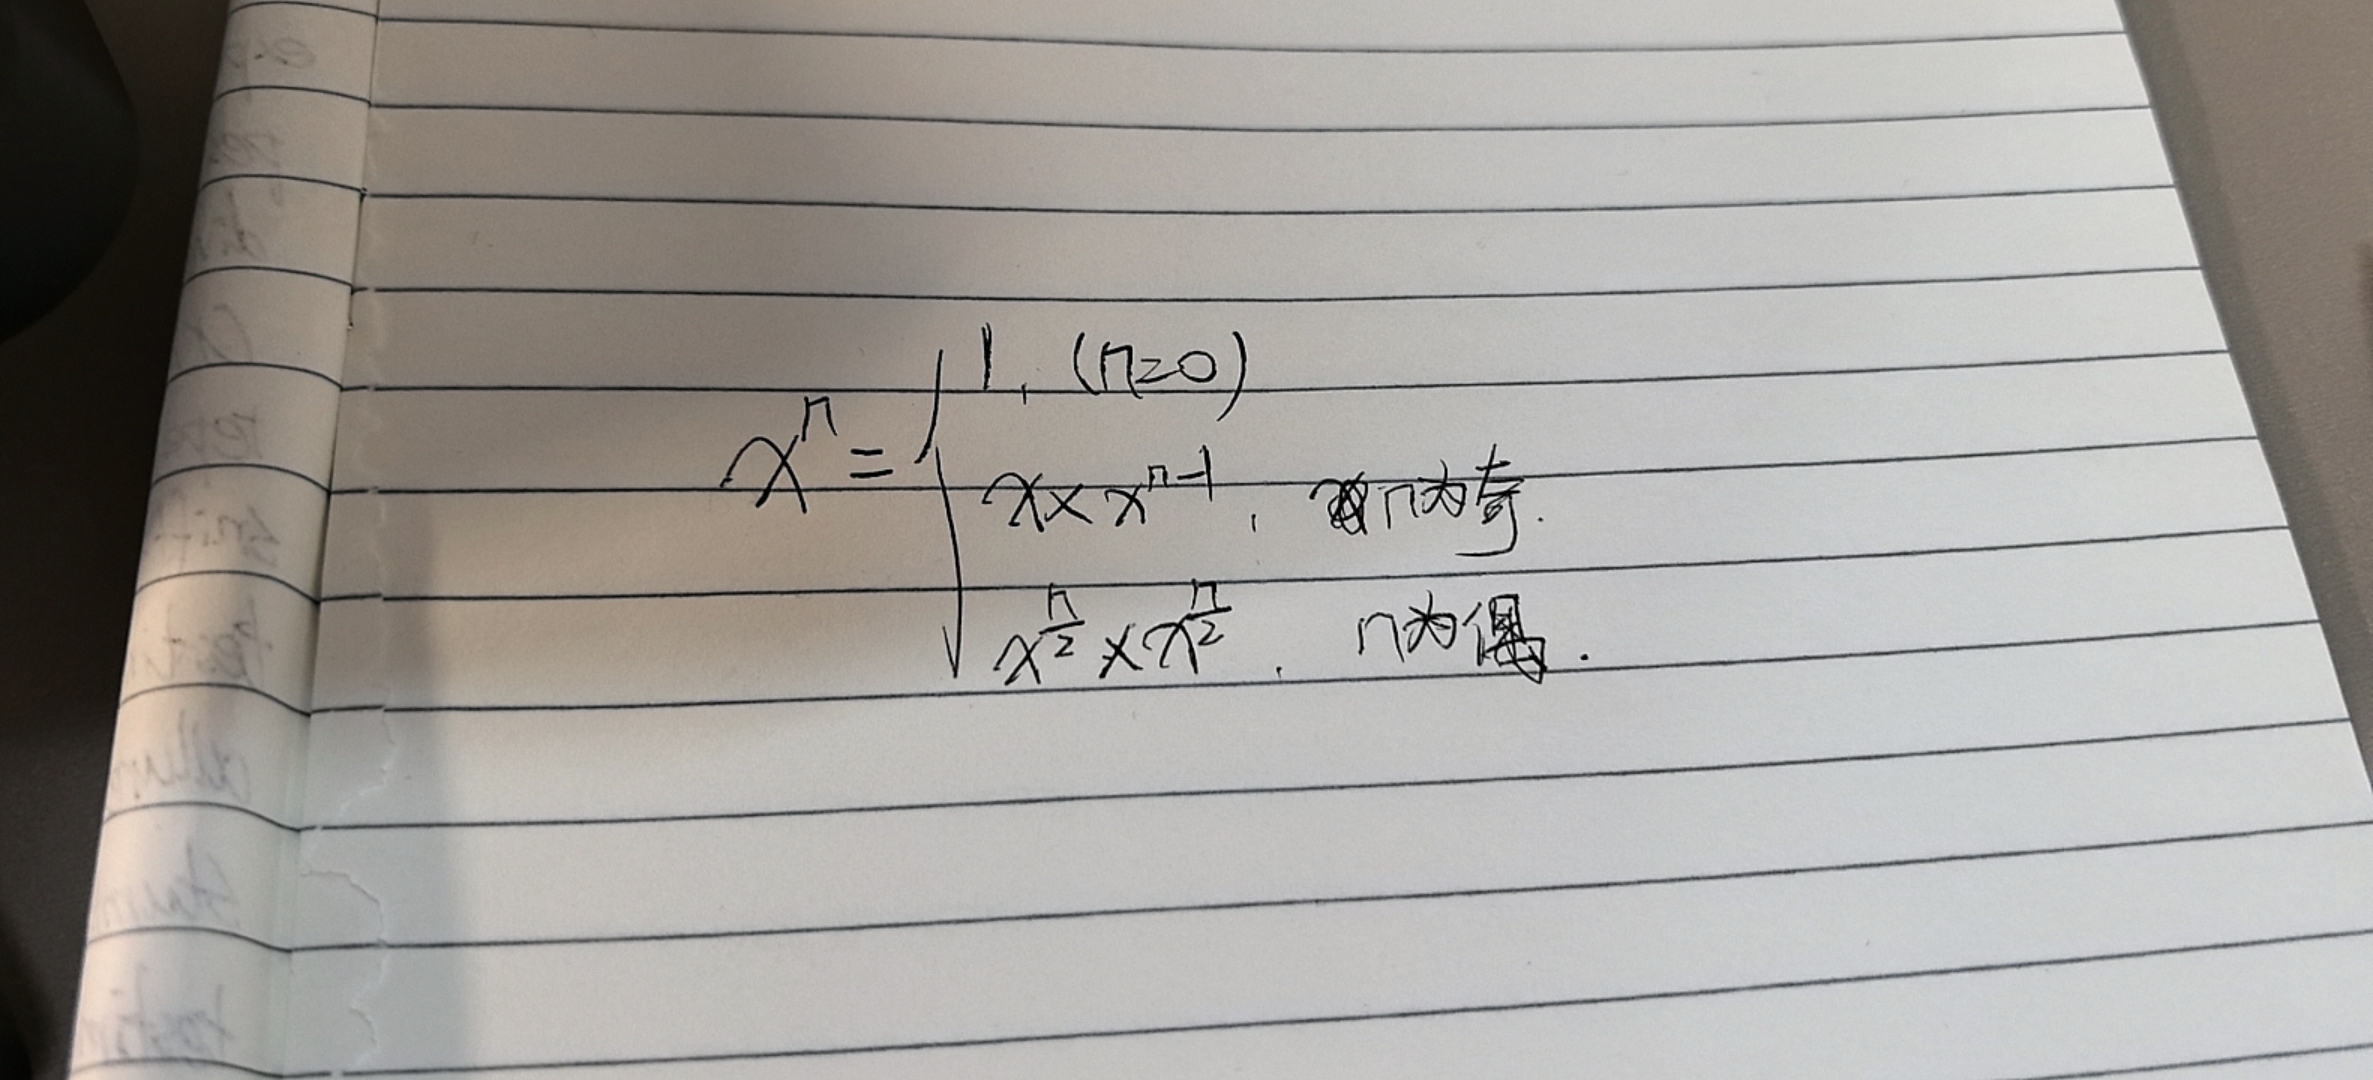 xⁿ = { 1, (n=0)
x × xⁿ⁻¹, n为奇.
x^(n/2) × x^(n/2), n为偶.